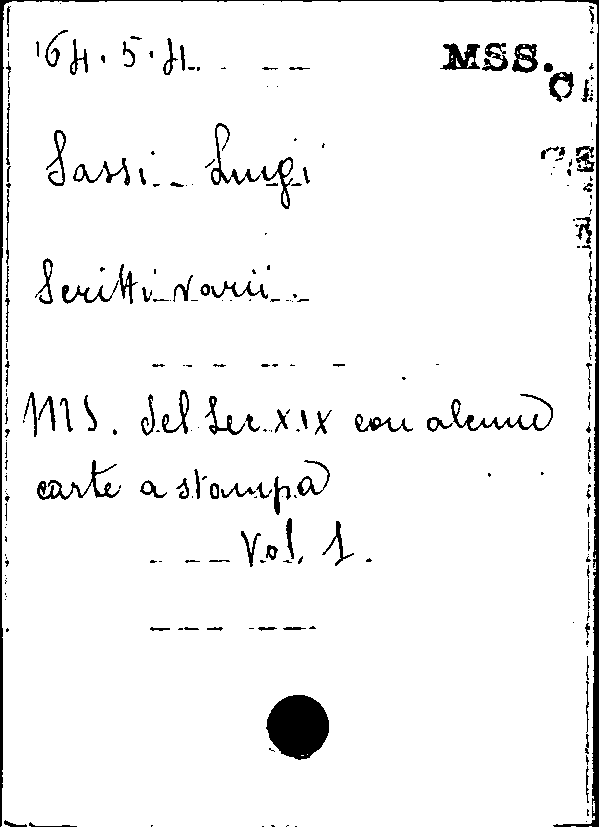 164.5.4. MSS.
C
Sassi Luigi
Scritti varii.
MS. del Sec XIX con alcune
carte a stampa
Vol. 1.